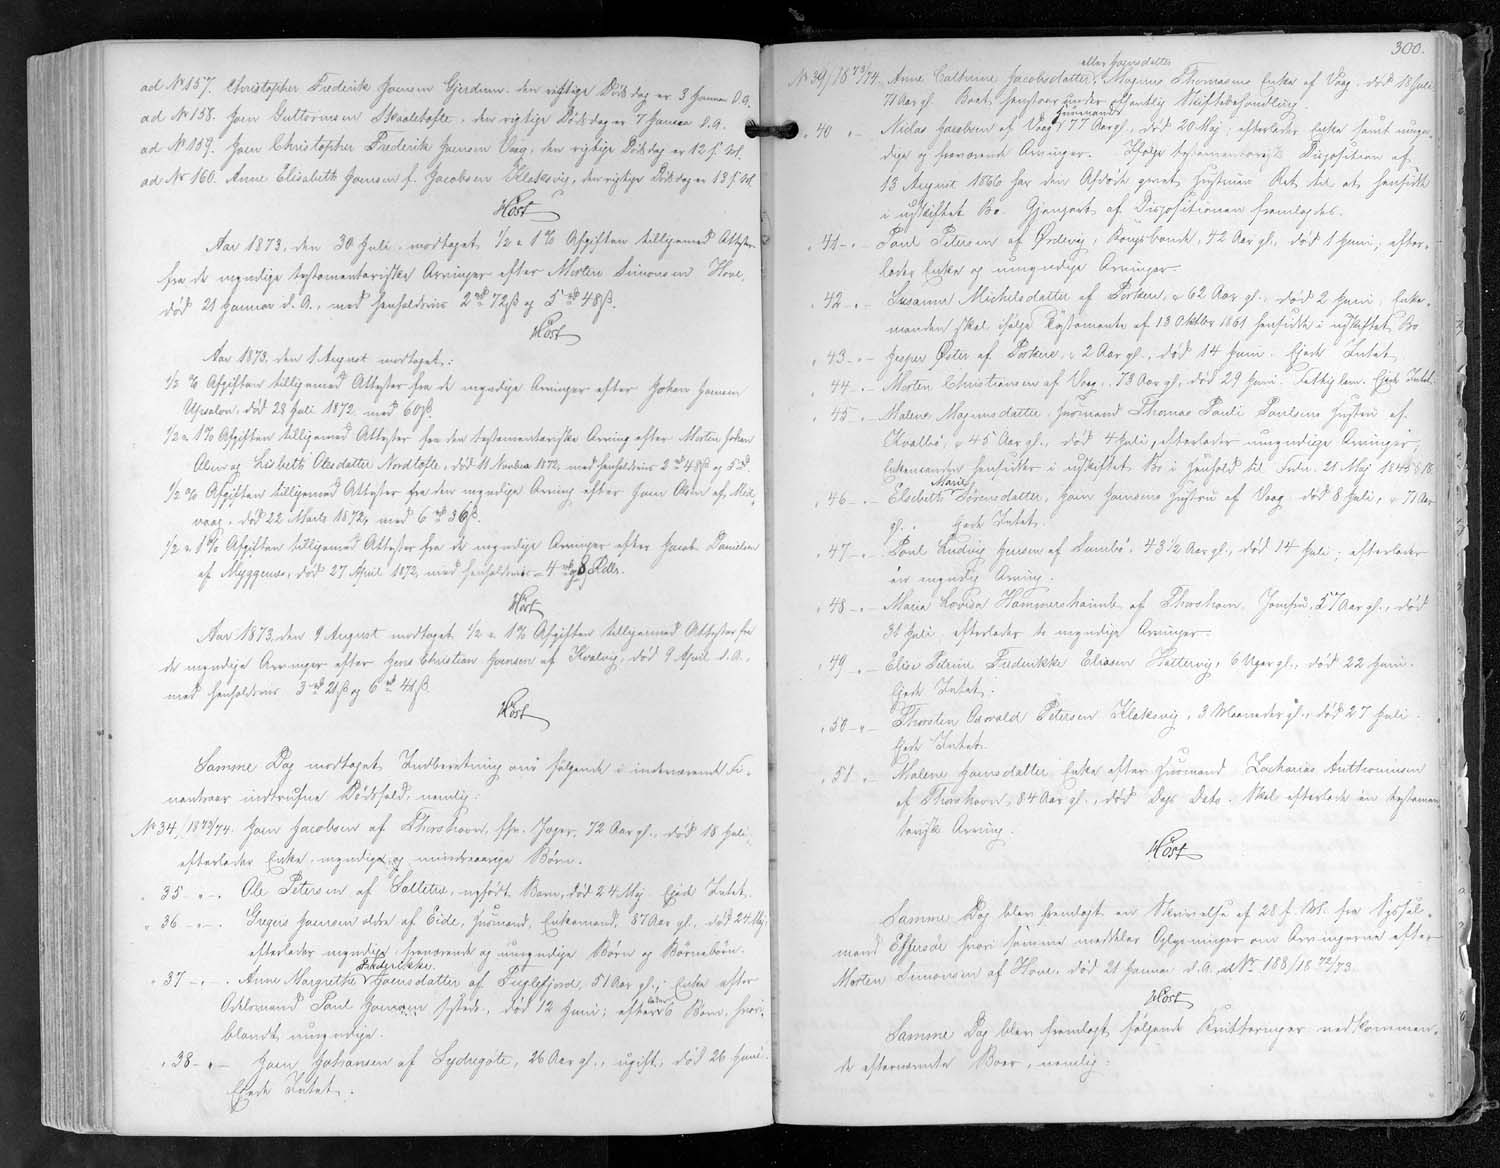 ad No 157. Christopher Frederik Joensen Gjerdum. den rigtige Dødsdag er 3 Januar d. A.
ad No 158. Joen Guttormsen Skaaletofte, den rigtige Dødsdag er 7 Januar d. A.
ad No 159. Joen Christopher Frederik Joensen Vaag, den rigtige Dødsdag er 12 f. M.
ad No 160. Anne Elisabeth Joensen f. Jacobsen Klaksvig, den rigtige Dødsdag er 13 f. M.
Høst
Aar 1873, den 30 Juli, modtaget 1/2 & 1% Afgiften tilligemed Attester
fra de myndige testamentariske Arvinger efter Morten Simonsen Hove,
død 21 Januar d. A., med henholdsvis 2 rd 72 ß og 5 rd 48 ß.
Høst
Aar 1873, den 1 August modtaget:
1/2 % Afgiften tilligemed Attester fra de myndige Arvinger efter Johan Joensen
Upsalon, død 28 Juli 1872 med 60 ß.
1/2 & 1% Afgiften tilligemed Attester fra den testamentariske Arving efter Morten Johan
Olsen og Lisbeth Olesdatter Nordtofte, død 11 Novber 1872, med henholdsvis 2 rd 48 ß og 5 rd.
1/2 % Afgiften tilligemed Attester fra den myndige Arving efter Joen Olsen af Mid-
vaag, død 22 Marts 1872, med 6 rd 36 ß.
1/2 & 1% Afgiften tilligemed Attester fra de myndige Arvinger efter Jacob Danielsen
af Myggenæs, død 27 April 1872, med henholdsvis 4 rd og 8 Rdlr.
Høst
Aar 1873, den 9 August modtaget 1/2 & 1% Afgiften tilligemed Attester fra
de myndige Arvinger efter Jens Christian Joensen af Kvalvig, død 9 April d. A.,
med henholdsvis 3 rd 21 ß og 6 rd 41 ß.
Høst
Samme Dag modtaget Indberetning om følgende i indeværende Fi-
nantsaar indtrufne Dødsfald, nemlig:
No 34/1873/74. Joen Jacobsen af Thorshavn, fhv. Jæger, 72 Aar gl., død 18 Juli,
efterlader Enke, myndige og mindreaarige Børn.
" 35 - " - . Ole Petersen af Saltetre, nyfødt Barn, død 24 Maj. Ejede Intet.
" 36 - " - . Gregers Joensen ældre af Eide, Huusmand, Enkemand, 87 Aar gl., død 24 Maj,
efterlader myndige, fraværende og umyndige Børn og Børnebørn.
Frederikke
" 37 - " - . Anne Margrethe Joensdatter af Fuglefjord, 51 Aar gl., Enke efter
Odelsmand Poul Joensen sstds., død 12 Juni; efterlader 6 Børn, hvori-
blandt umyndige.
" 38 - " - Joen Johansen af Sydregøte, 26 Aar gl., ugift, død 26 Juni.
Ejede Intet.
300.
eller Joensdatter
No 39/1873/74. Anne Cathrine Jacobsdatter, Magnus Thomasens Enke af Vaag, død 18 Juli
71 Aar gl. Boet henstaar under offentlig Skiftebehandling.
Huusmand
" 40 " - Niclas Jacobsen af Vaag, 77 Aar gl., død 20 Maj; efterlader Enke samt myn-
dige og fraværende Arvinger. Ifølge testamentarisk Disposition af
13 August 1866 har den Afdøde givet Hustruen Ret til at hensidde
i uskiftet Bo. Gjenpart af Dispositionen fremlagdes.
" 41 - " - Poul Petersen af Ørdevig, Kongsbonde, 42 Aar gl., død 1 Juni; efter-
lader Enke og umyndige Arvinger.
" 42 - " - Susanne Michelsdatter af Porkere, 62 Aar gl., død 2 Juni. Enke-
manden skal ifølge Testamente af 13 Oktbr 1861 hensidde i uskiftet Bo
" 43 - " - Jesper Øster af Porkere, 2 Aar gl., død 14 Juni. Ejede Intet.
" 44 - " - Morten Christiansen af Vaag, 73 Aar gl., død 29 Juni. Fattiglem. Ejede Intet.
" 45 - " - Malene Magnusdatter, Huusmand Thomas Pauli Poulsens Hustru af
Kvalbø, 45 Aar gl., død 4 Juli, efterlader umyndige Arvinger;
Enkemanden hensidder i uskiftet Bo i Henhold til Frdn. 21 Maj 1845 § 18
Marie
" 46 - " - Elsebeth Sørensdatter, Joen Joensens Hustru af Vaag, død 8 Juli, 71 Aar
gl. Ejede Intet.
" 47 - " - Poul Ludvig Jensen af Sumbø, 43 1/2 Aar gl., død 14 Juli; efterlader
een myndig Arving.
" 48 - " - Maria Lovisa Hammershaimb af Thorshavn, Jomfru, 57 Aar gl., død
31 Juli, efterlader to myndige Arvinger.
" 49 - " - Elise Petrine Frederikke Eliasen Hattervig, 6 Uger gl., død 22 Juni.
Ejede Intet.
" 50 - " - Thorsten Osvald Petersen Klaksvig, 3 Maaneder gl., død 27 Juli.
Ejede Intet.
" 51 - " - Malene Hansdatter, Enke efter Huusmand Zacharias Anthoniussen
af Thorshavn, 84 Aar gl., død Dags Dato. Skal efterlade en testamen-
tarisk Arving.
Høst
Samme Dag blev fremlagt en Skrivelse af 28 f. M. fra Syssel-
mand Effersøe hvori samme meddeler Oplysninger om Arvingerne efter
Morten Simonsen af Hove, død 21 Januar d. A. ad No 188/1872/73.
Høst
Samme Dag blev fremlagt følgende Kvitteringer vedkommen-
de efternævnte Boer, nemlig: